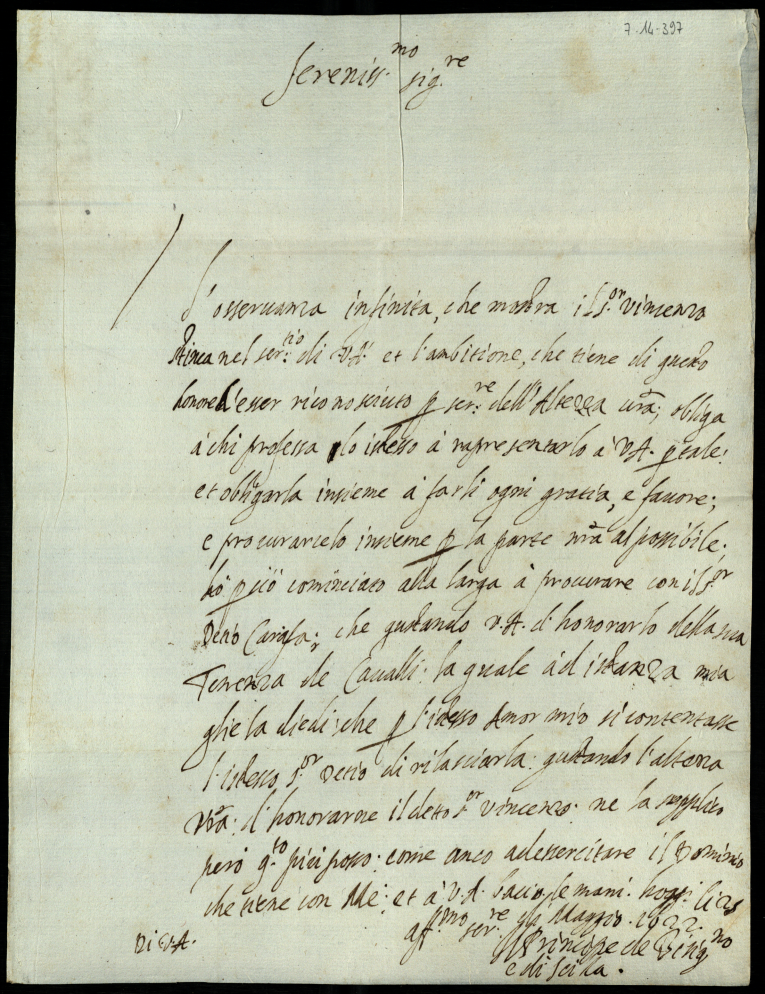 7-14-397
Sereniss.mo sig.re
L'osservanza infinita, che mostra il S.or Vincenzo
nel ser.tio di V.A. et l'ambitione, che tiene di questo
honore d'esser riconosciuto p ser.re dell'Altezza vra; obliga
à chi professa lo istesso à rapresentarlo à V.A. p tale:
et obligarla insieme à farli ogni gratia, e favore;
e procurarcelo insieme p la parte mia al possibile;
hò p ciò cominciato alla larga à procurare con il S.or
Detio Carafa; che gustando V.A. d'honorarlo della sua
Tenenza de Cavalli: la quale ad istanza mia
glie la diedi: che p l'istesso Amor mio si contentasse
l'istesso S.or Detio di rilasciarla: gustando l'altezza
Vra: d'honorarne il detto S.or Vincenzo: ne la supplico
però q.to più posso: come anco ad essercitare il Dominio
che tiene con Me: et à V.A. bacio le mani. hoggi li 25
di Maggio. 1622.
Di V.A.
aff.mo ser.re
Il Principe de
e di Scilla.